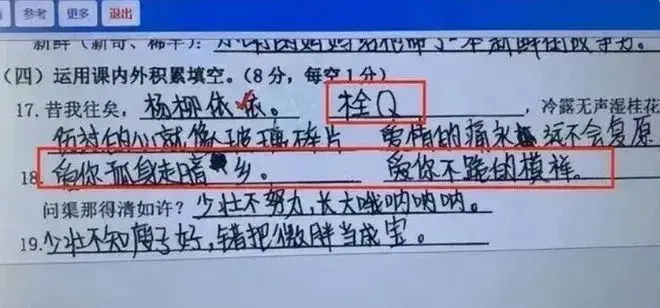 参考 更多 退出
新鲜(新奇、稀罕):
(四)运用课内外积累填空。(8分,每空1分)
17. 昔我往矣,杨柳依依。 栓Q ,冷露无声湿桂花
伤过的心就像玻璃碎片 爱情的痛永远不会复原
18. 爱你孤身走暗乡。 爱你不跪的模样。
问渠那得清如许?少壮不努力,长大哦呐呐呐。
19. 少壮不知瘦子好,错把微胖当成宝。